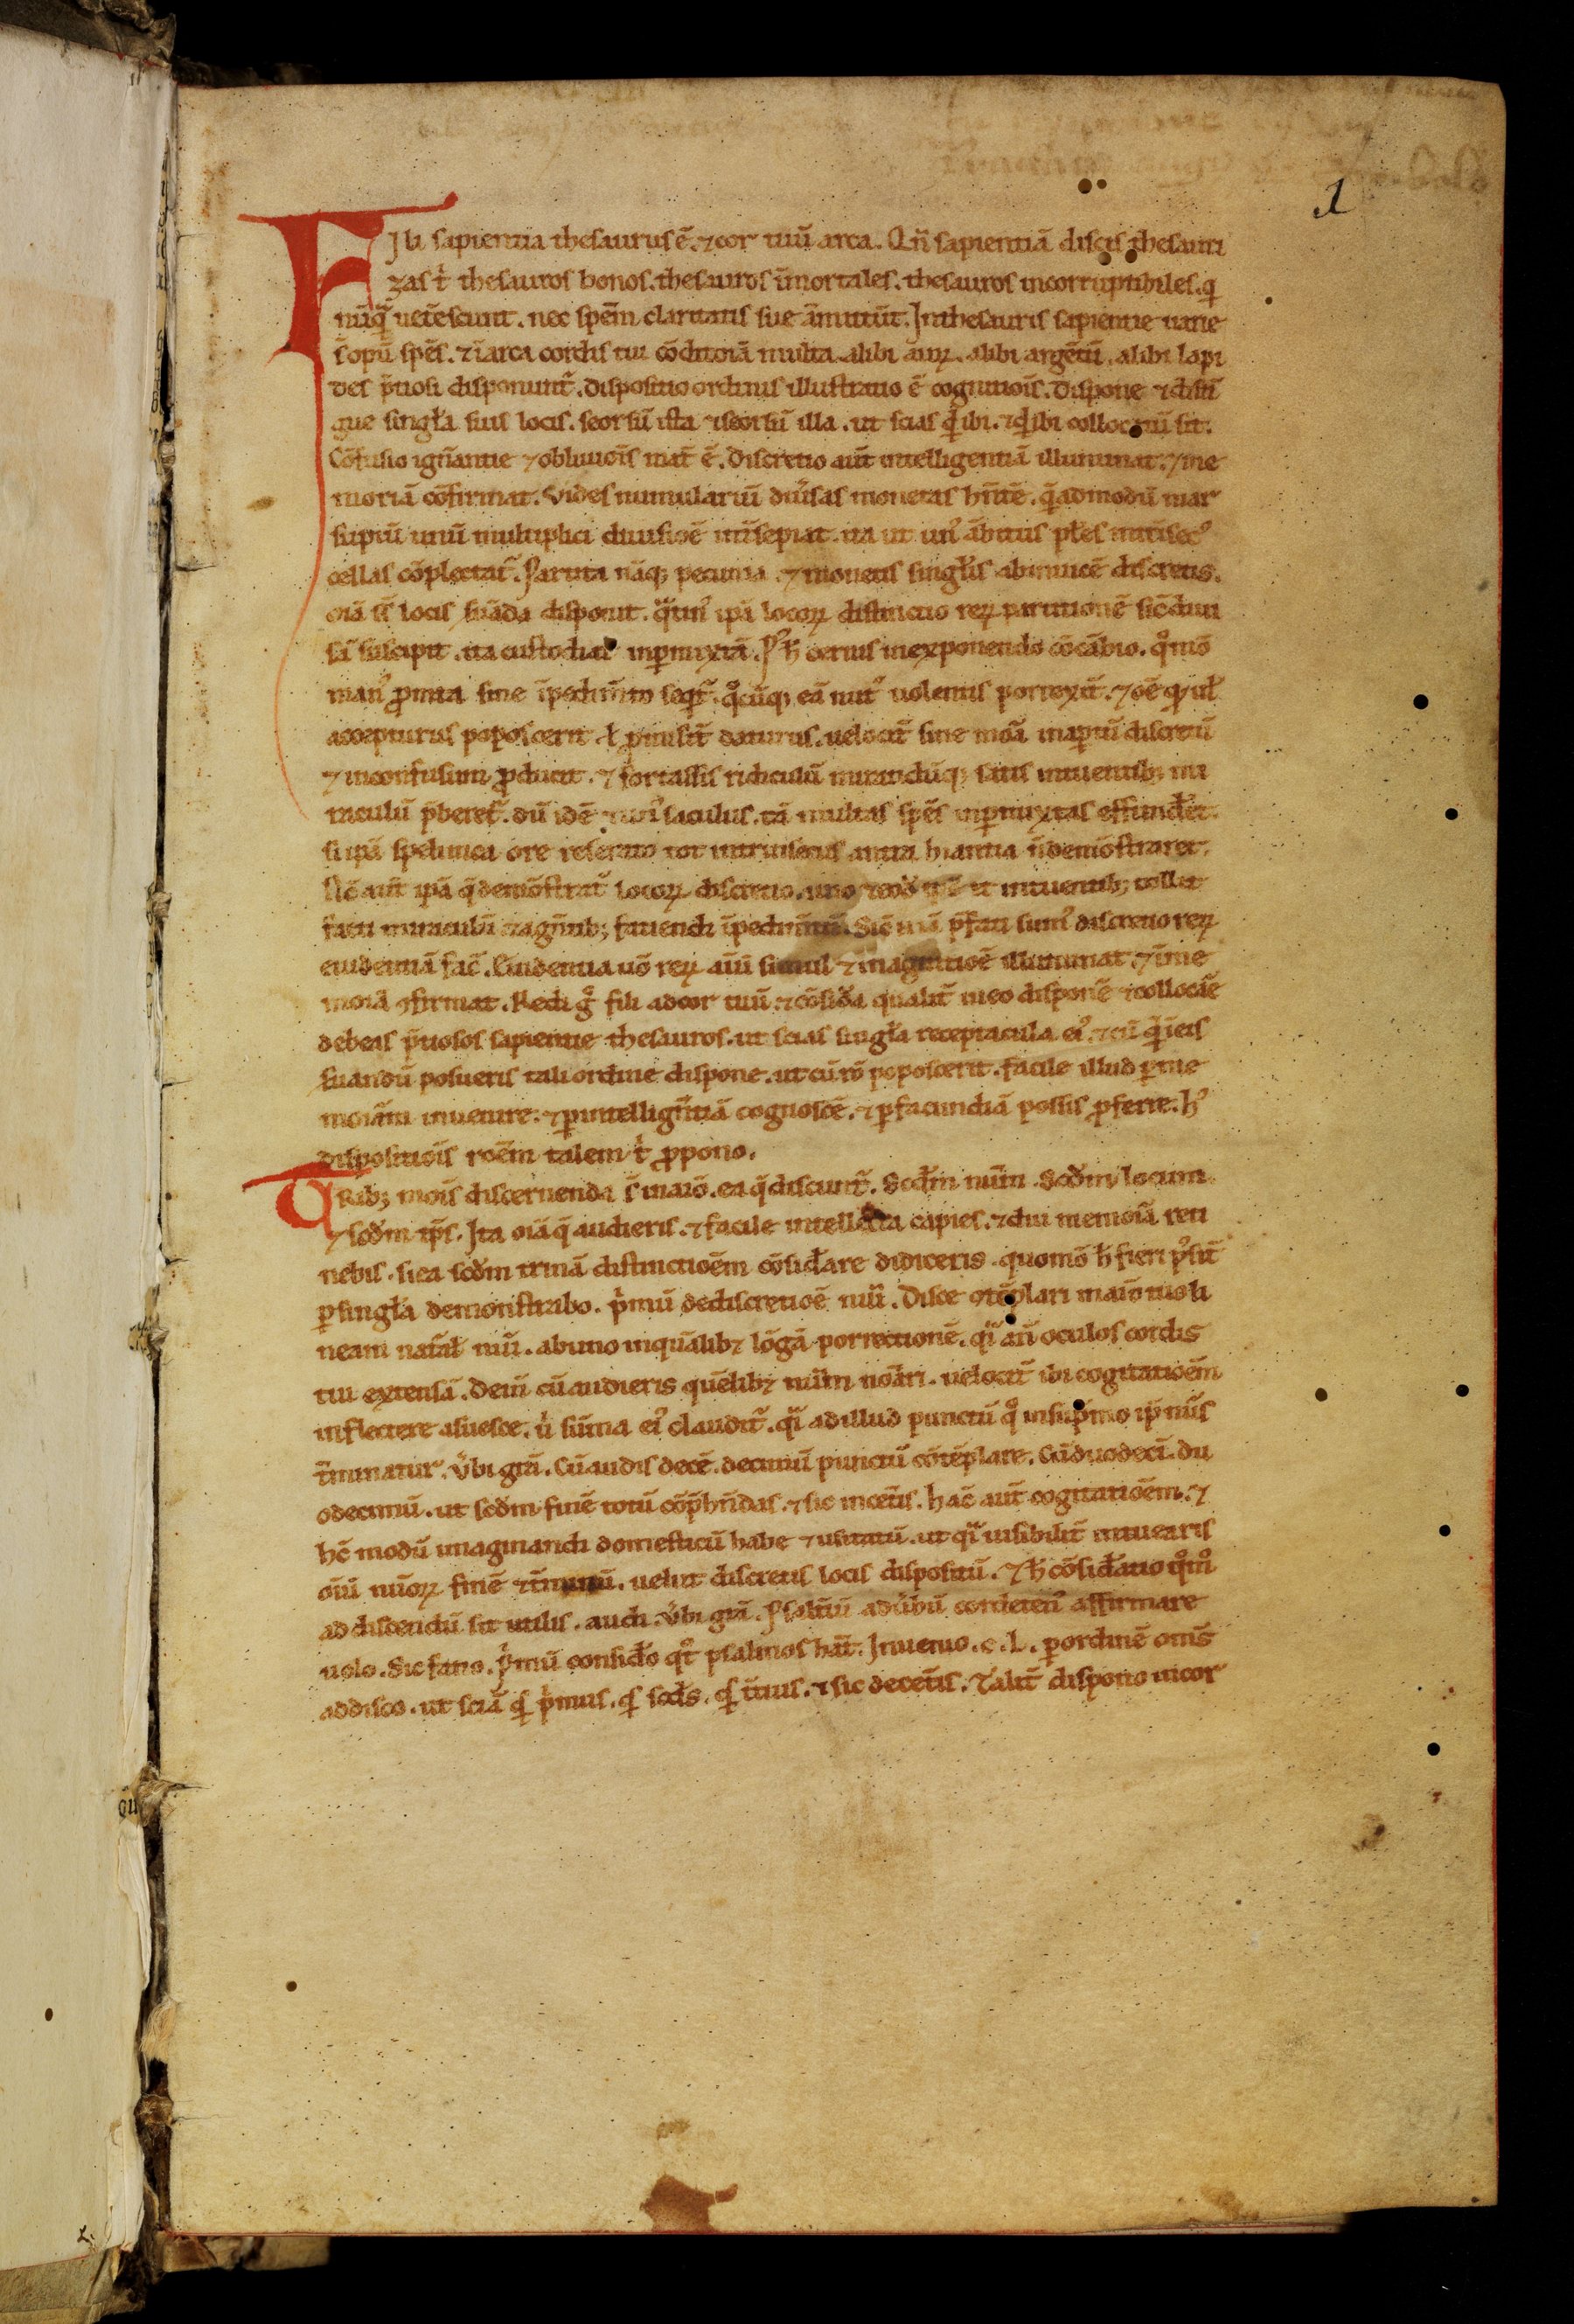 1
FIli sapientia thesaurus ē. ⁊ cor tuū arca. Qn̄ sapientiā discis thesauri
zas t̄ thesauros bonos. thesauros īmortales. thesauros incorruptibiles. q
nūq̄ uet̄escunt. nec spēm claritatis sue āmittūt. In thesauris sapientie uarie
s̄ opū spēs. ⁊ ī arca cordis tui cōditoīa multa. alibi aurꝝ. alibi argētū. alibi lapi
des p̄tiosi disponunt̄. Dispositio ordinis illustratio ē cognitiois̄. Dispone ⁊ disti
gue singl̄a suis locis. seorsū ista ⁊ seorsū illa. ut scias qͥd ibi. ⁊ qͥd ibi collocatū sit.
Cōfusio ign̄antie ⁊ obliuiois̄ mat̄ ē. Discretio aūt intelligentiā illuminat. ⁊ me
moriā cōfirmat. Vides numulariū diūsas monetas hn̄tē. q̄ admodū mar
supiū unū multiplici diuisiōe int̄sepiat. ita ut unꝰ ābitus pl̄es intⁱsecꝰ
cellas cōplectat̄. Partita nāqꝫ pecunia. ⁊ monetis singl̄is abinuicē discretis.
oīa s̄ locis suāda disponit. q̄tinꝰ ip̄a locoꝝ distinctio reꝝ partitionē sic̄ diui
sā suscipit. ita custodiat inp̄mixtā. Pꝰ h̄ cernis in exponendo cōcābio. qͦmō
manꝰ ꝓmta sine īpedimto seqͥt̄. qͦcūqꝫ eā nutꝰ uolentis porrexit̄. ⁊ oē qd̄ ul̄
accepturus poposcerit. ł ꝓmisit̄ daturus. uelocit̄ sine moā in aptū discretū
⁊ inconfusum ꝓducit. ⁊ fortassis ridiculū mirandūqꝫ satis intuentibꝫ mi
raculū p̄beret̄. dū idē ⁊ unꝰ saculus. tā multas spēs inp̄mixtas effundet.
si ip̄a spelunca ore reserato tot intrinsecus antra hiantia n̄ demōstraret.
Hec aūt ip̄a q̄ demōstrat̄ locoꝝ discretio. uno ⁊ eod̄ et intuentibꝫ tollit
facti miraculū ⁊ agētibꝫ faciendi īpedimtū. Sic̄ nā p̄fati sumꝰ discretio reꝝ
euidentiā fac̄. Euidentia uō reꝝ aīū simul ⁊ in cognitiōe illuminat. ⁊ ī me
moīa ꝯfirmat. Redi gͦ fili ad cor tuū. ⁊ cōsid̄a qualit̄ in eo disponē ⁊ collocāe
debeas p̄tiosos sapientie thesauros. ut scias singl̄a receptacula eiꝰ. ⁊ cū qͥd ī eis
suandū posueris tali ordine dispone. ut cū rō poposcerit. facile illud ꝑ me
moīam inuenire. ⁊ ꝑ intelligentiā cognoscē. ⁊ ꝑ facundiā possis ꝓferre. hꝰ
dispositiois̄ roēm talem t̄ ꝓpono.
TRibꝫ mois̄ discernenda s̄ in aīo. ea q̄ discunt̄. Scd̄m num̄. Scd̄m locum.
⁊ scd̄m tp̄s. Ita oīa q̄ audieris. ⁊ facile intellecta capies. ⁊ diu memoīa reti
nebis. si ea scd̄m trinā distinctioēm cōsid̄are didiceris. quomō h̄ fieri pͦsit̄
ꝑ singl̄a demonstrabo. Pͥmū de discretiōe nūi. Disce ꝯtēplari in aīo tuo li
neam natāl nūi. ab uno in quālibꝫ lōgā porrectionē. qͣi an̄ oculos cordis
tui extensā. Dein̄ cū audieris quēlibꝫ num̄ noīari. uelocit̄ ibi cogitatioēm
inflectere asuesce. ū sūma eiꝰ claudit̄. qͣi ad illud punctū qͦ in supͥmo ip̄ nūs
t̄minatur. ūbi grā. Cū audis decē. decimū punctū cōtēplare. Cū duodecī. du
odecimū. ut scd̄m finē totū cōp̄hn̄das. ⁊ sic in cet̄is. hāc aūt cogitatioēm. ⁊
hc̄ modū imaginandi domesticū habe ⁊ usitatū. ut qͣi uisibilit̄ intuearis
oīū nūoꝝ finē ⁊ t̄minū. uelut discretis locis dispositū. ⁊ h̄ cōsid̄atio qͦmͦ
ad discendū sit utilis. audi. ūbi grā. Psalt̄iū ad ūbū cordetenꝰ affirmare
uolo. Sic facio. Pͥmū consid̄o qͦt psalmos hāt. Inuenio .c.L. ꝑ ordinē omīs
addisco. ut sciā qͥs pͥmus. qͥs scd̄s. qͥs t̄tius. ⁊ sic de cet̄is. Talit̄ dispono in cor